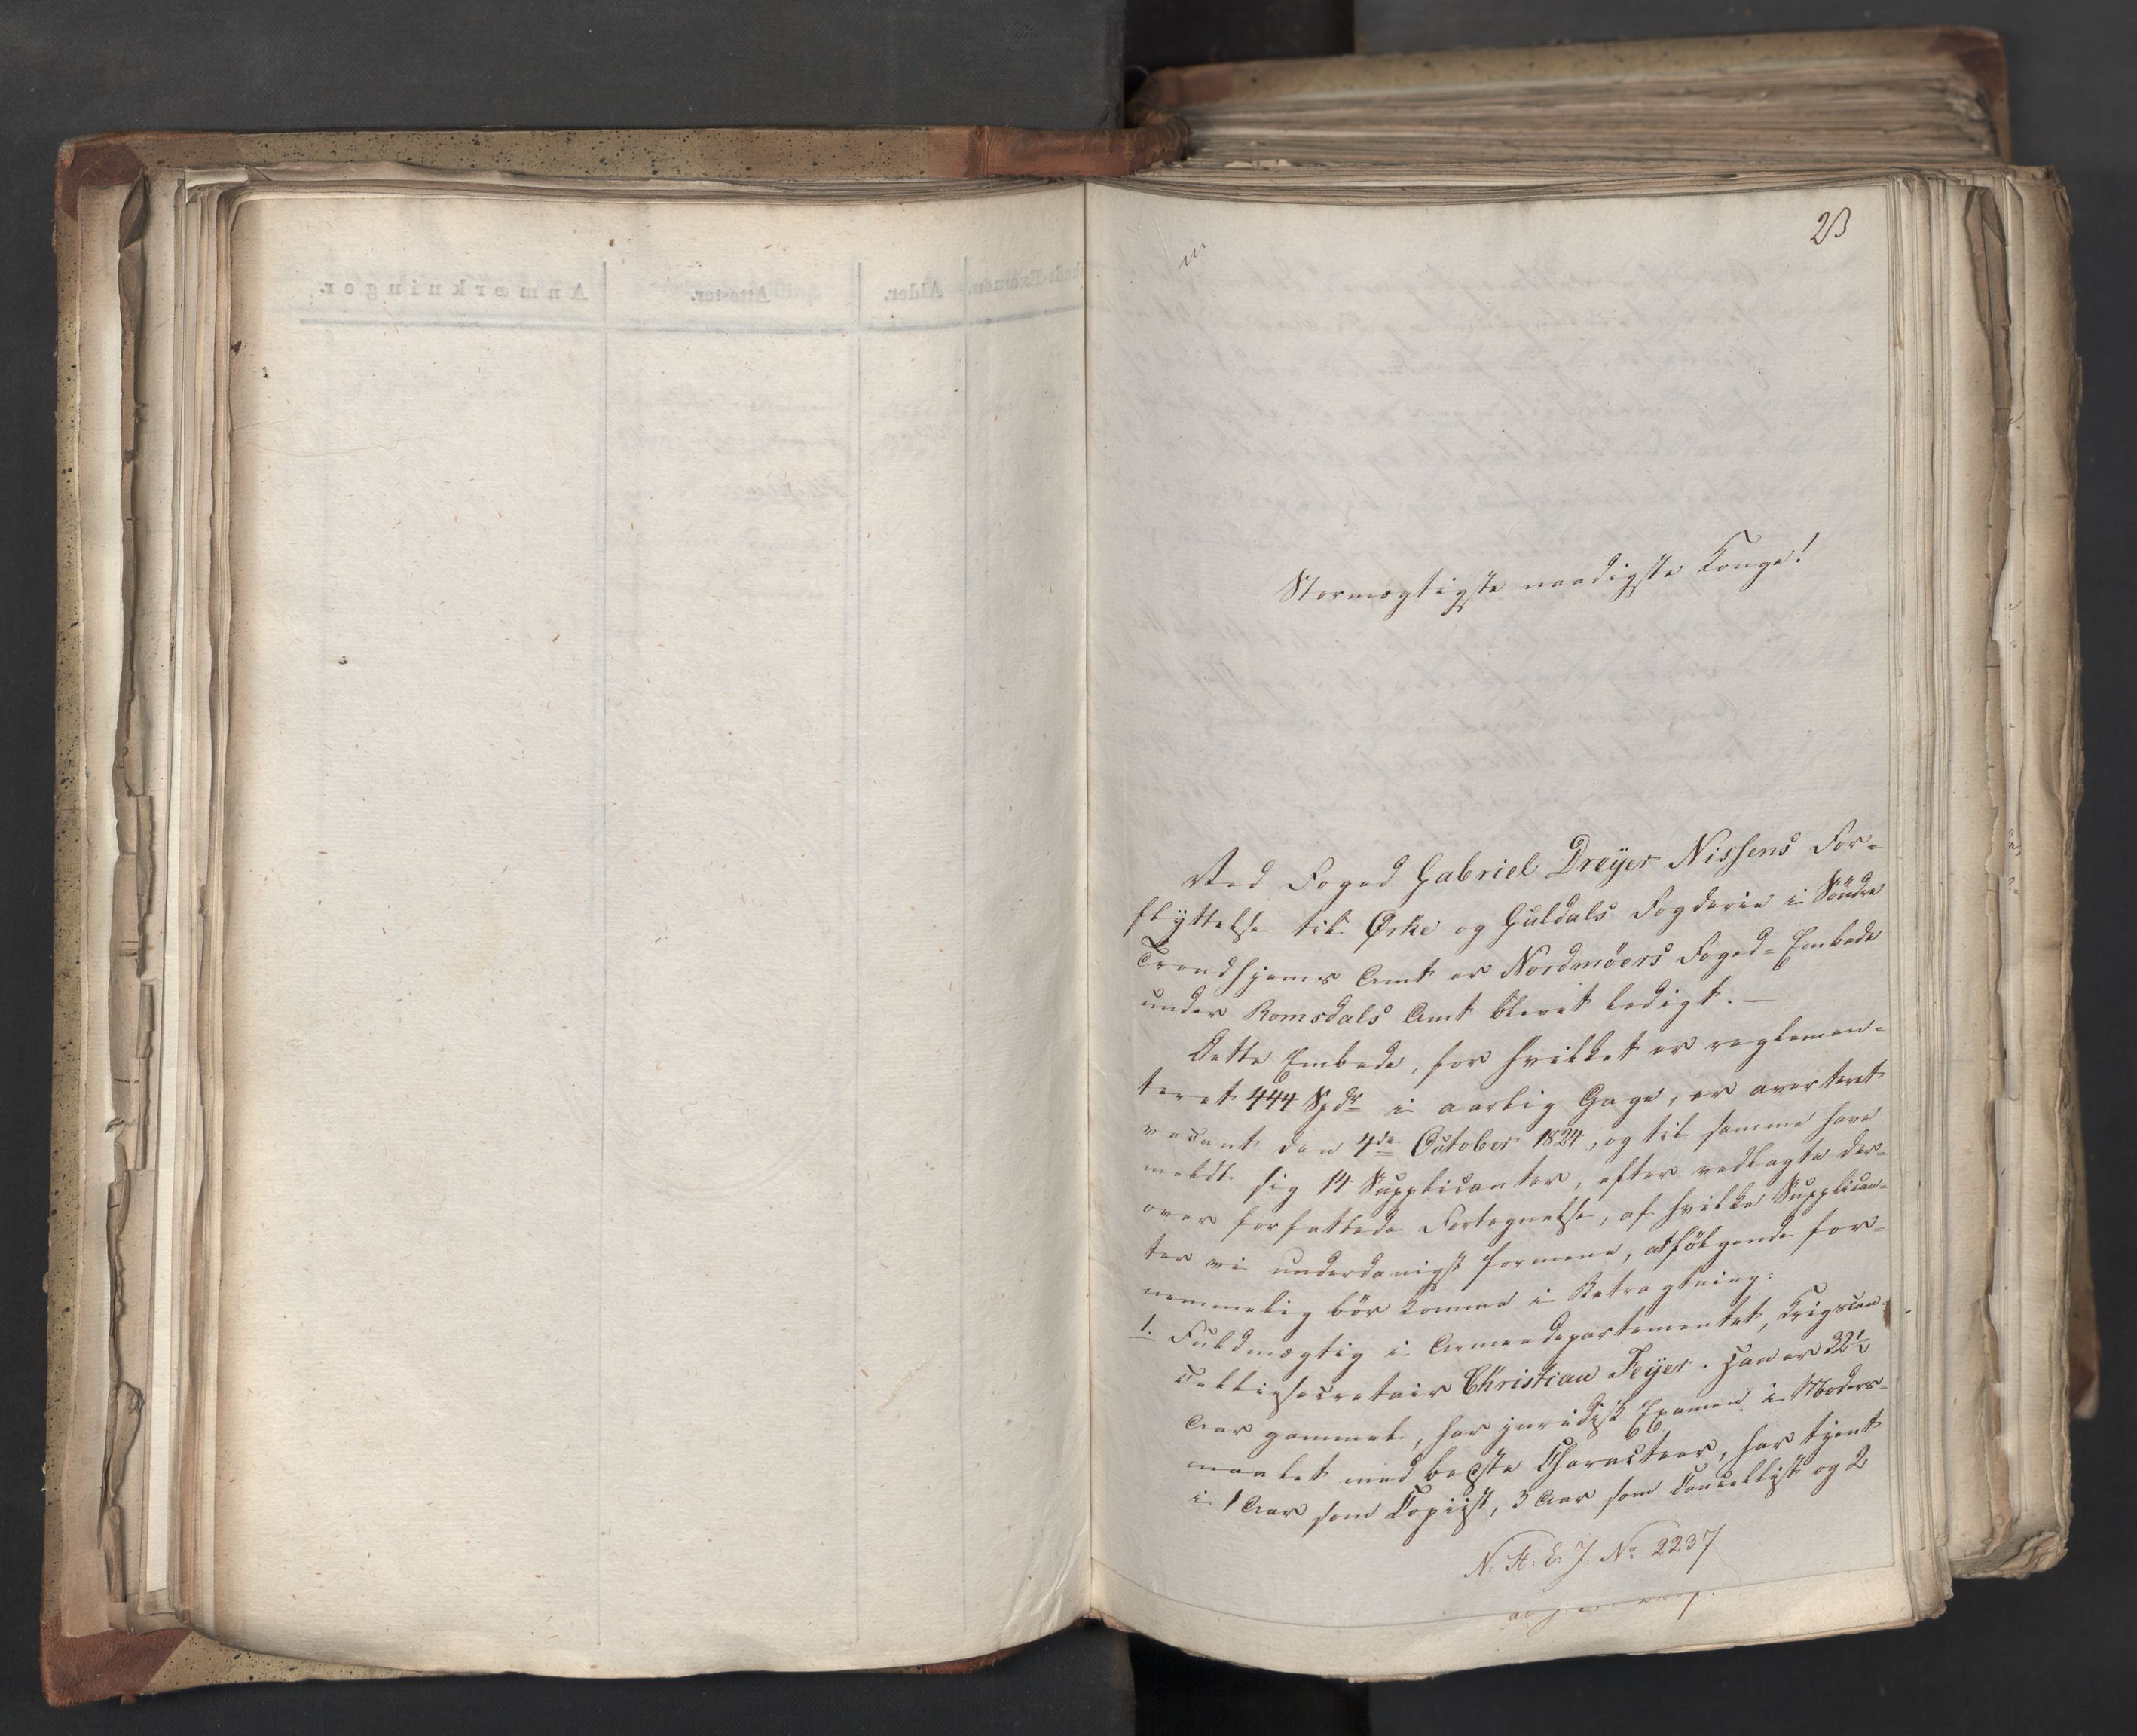 23
Stormægtigste naadigste Konge!
Ved Foged Gabriel Dreyer Nissens For-
flyttelse til Ørke og Guldals Fogderie i Söndre
Trondhjems Amt er Nordmöers Foged-Embede
under Romsdals Amt blevet ledigt. —
Dette Embede, for hvilket er reglemen-
teret 444 Spdr i aarlig Gage, er averteret
vacant den 4de October 1824, og til samme have
meldt sig 14 Supplicanter, efter vedlagte der-
over forfattede Fortegnelse, af hvilke Supplican-
ter vi underdanigst formene, at følgende for-
nemmelig bör komme i Betragtning:
1. Fuldmægtig i Armeedepartementet, Krigscan-
cellisecretair Christian Feyer. Han er 32½
Aar gammel, har juridisk Examen i Moders-
maalet med bedste Characteer, har tjent
i 1 Aar som Copiist, 3 Aar som Cancellist og 2
N. St: E. J: No 2237
Anmærkninger.
Attester.
Alder.